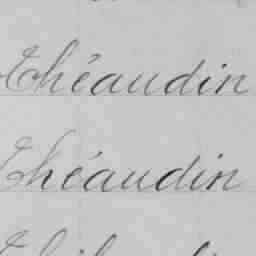 Théaudin
Théaudin